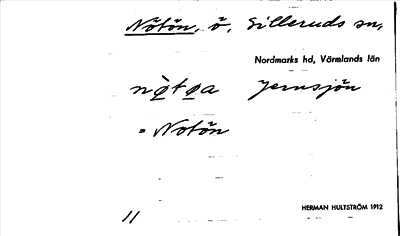 Nötön, ö, Silleruds sn,
Nordmarks hd, Värmlands län
nø̀tøa Jernsjön
= Notön
HERMAN HULTSTRÖM 1912
11